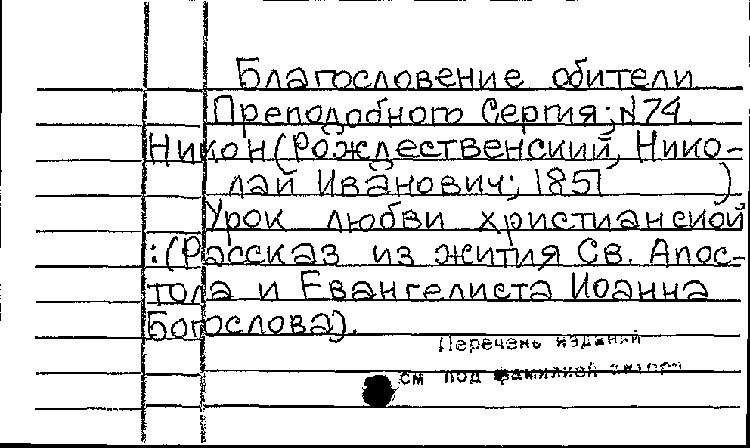 Благословение обители
Преподобного Сергия; №74.
Никон(Рождественский, Нико-
лай Иванович; 1851 )
Урок любви христианской
:(Рассказ из жития Св. Апос-
тола и Евангелиста Иоанна
Богослова).
Перечень изданий
см под фамилией автора